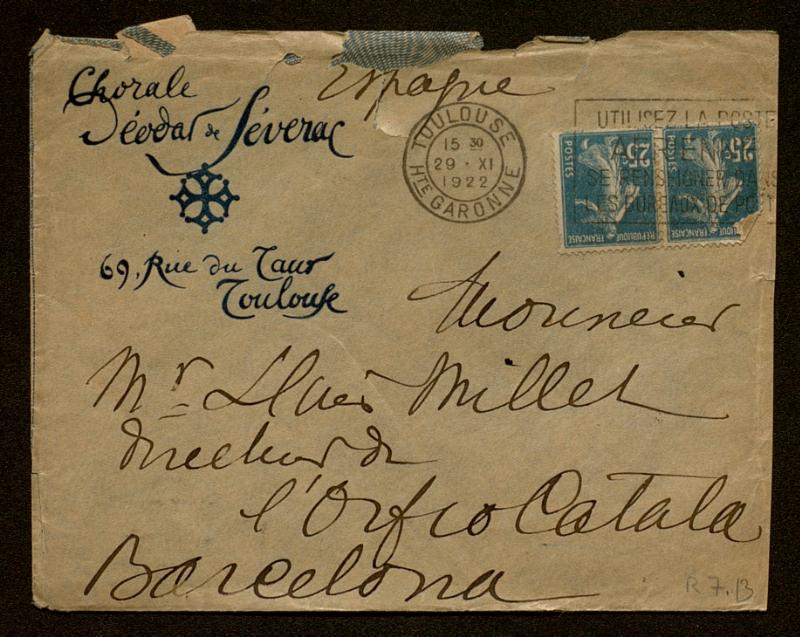 Chorale
Déodat de Séverac
69, Rue du Taur
Toulouse
Espagne
TOULOUSE
15 30
29 · XI
1922
HTE GARONNE
UTILISEZ LA POSTE
AERIENNE
SE RENSEIGNER DANS
LES BUREAUX DE POSTE
25c POSTES
REPUBLIQUE FRANÇAISE
25c
REPUBLIQUE FRANÇAISE
Monneier
Mr Lluis Millet
directeur de
l'Orfeo Catala
Barcelona
R 7. B